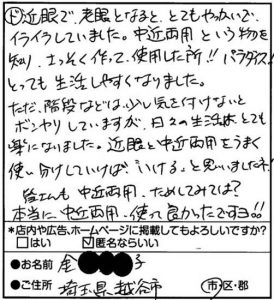 ド近眼で、老眼となると、とてもやっかいで、
イライラしていました。中近両用という物を
知り、さっそく作って使用した所!!パラダイス!
とっても生活しやすくなりました。
ただ、階段などは少し気を付けないと
ボンヤリしていますが、日々の生活はとても
楽になりました。近眼と中近両用をうまく
使い分けしていけば、いける。と思いましたネ!
皆さんも中近両用、ためしてみては?
本当に、中近両用、使って良かったですヨ!!
*店内や広告、ホームページに掲載してもよろしいですか?
□はい ☑匿名ならいい
●お名前 金 子
●ご住所 埼玉県越谷市 市・区・郡